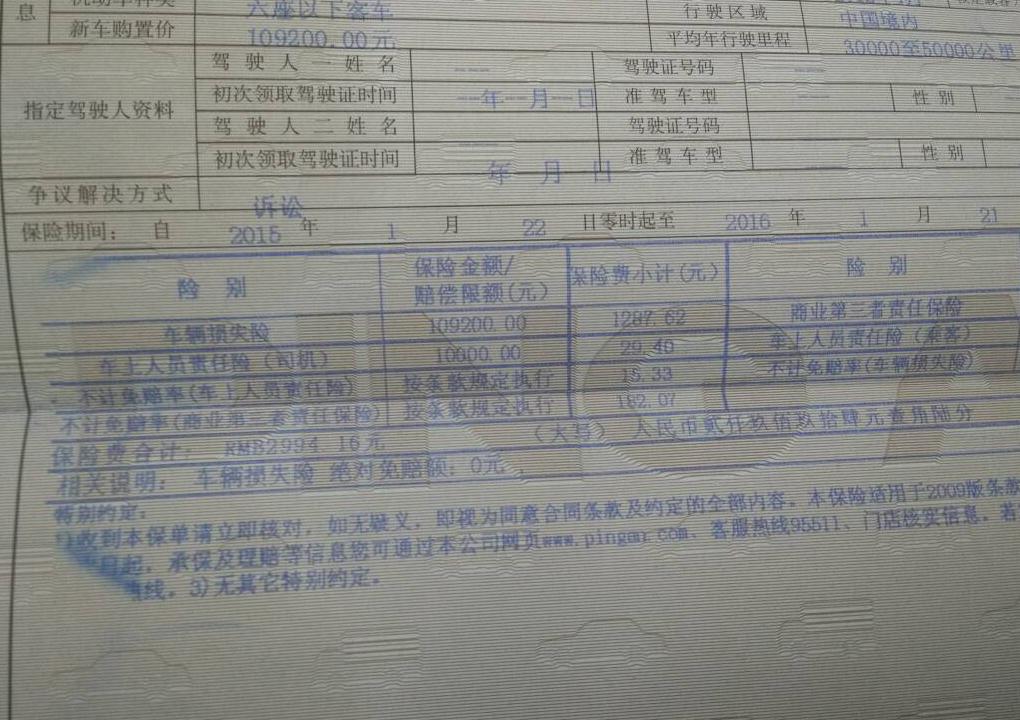 息 机动车种类 六座以下客车 行驶区域 中国境内
新车购置价 109200.00元 平均年行驶里程 30000至50000公里
指定驾驶人资料 驾驶人一姓名 —— 驾驶证号码 ——
初次领取驾驶证时间 —年—月—日 准驾车型 —— 性别
驾驶人二姓名 —— 驾驶证号码
初次领取驾驶证时间 年 月 日 准驾车型 —— 性别
争议解决方式 诉讼
保险期间: 自 2015 年 1 月 22 日零时起至 2016 年 1 月 21
险 别 保险金额/赔偿限额(元) 保险费小计(元) 险 别
车辆损失险 109200.00 1287.62 商业第三者责任保险
车上人员责任险(司机) 10000.00 29.40 车上人员责任险(乘客)
不计免赔率(车上人员责任险) 按条款规定执行 15.33 不计免赔率(车辆损失险)
不计免赔率(商业第三者责任保险) 按条款规定执行 182.07
保险费合计: RMB2994.16元 (大写) 人民币贰仟玖佰玖拾肆元壹角陆分
相关说明: 车辆损失险 绝对免赔额: 0元
特别约定:
1)收到本保单请立即核对,如无疑义,即视为同意合同条款及约定的全部内容。本保险适用于2009版条款
日起,承保及理赔等信息您可通过本公司网页www.pingan.com、客服热线95511、门店核实信息,若
热线。3)无其它特别约定。